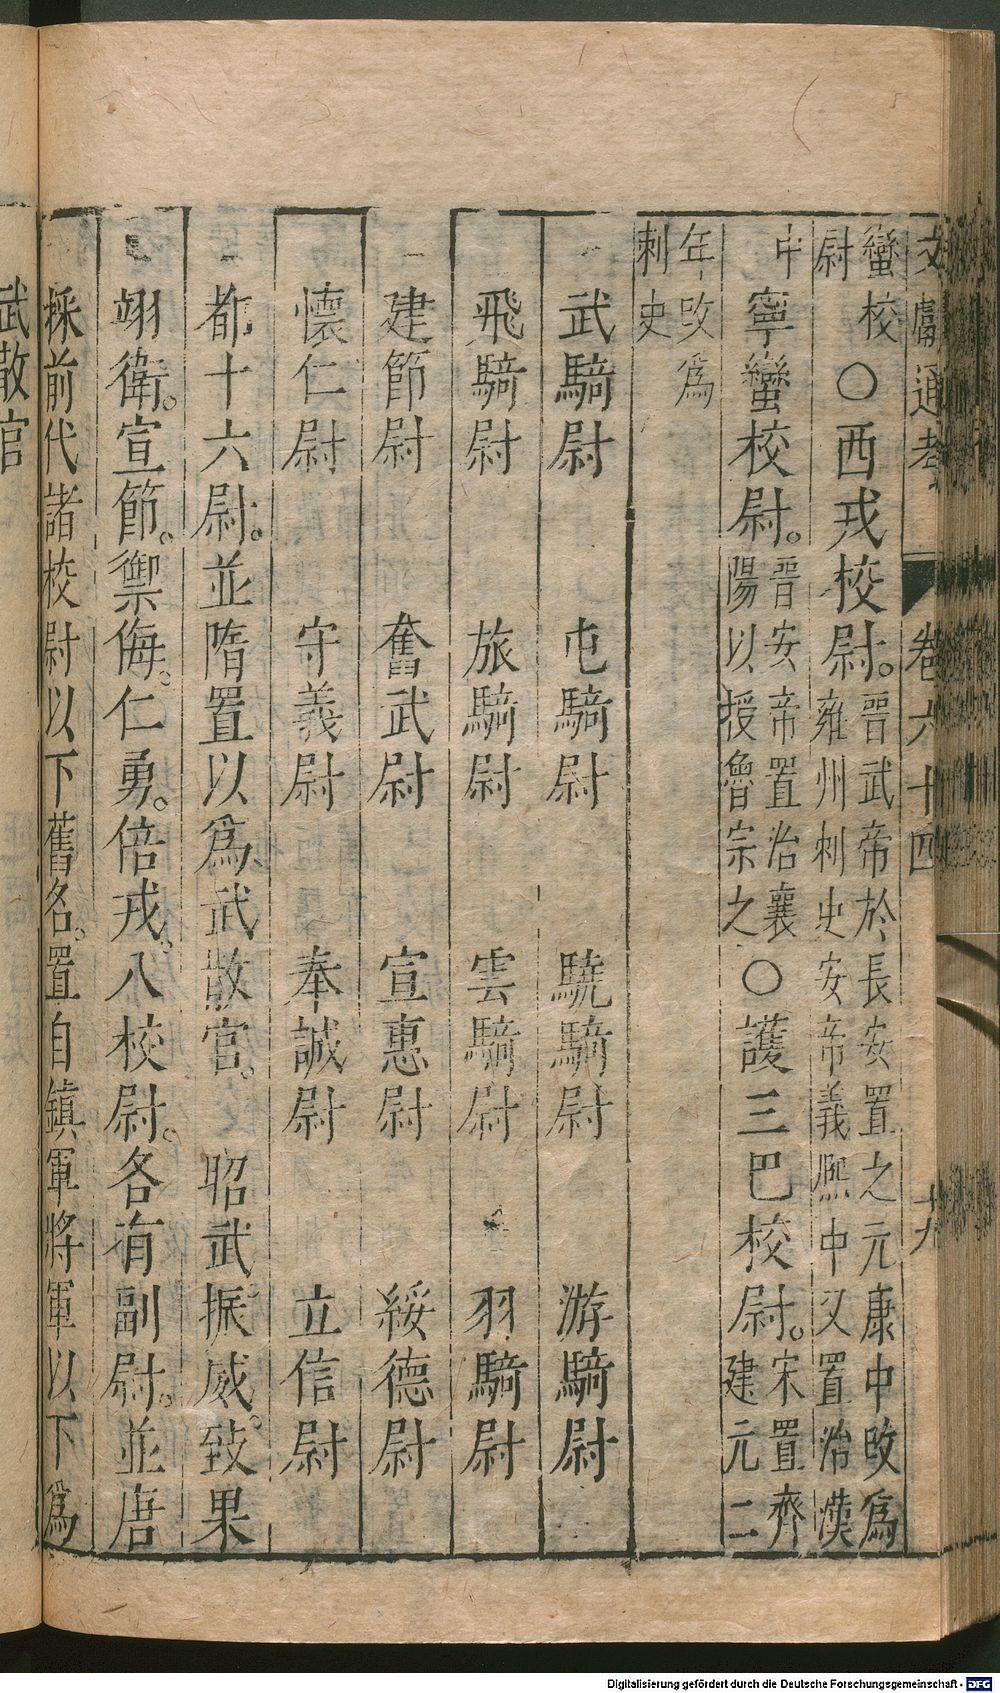 文獻通考 卷六十四 十九
蠻校尉〇西戎校尉。晉武帝於長安置之元康中改爲雍州刺史安帝義熙中又置治漢
中寧蠻校尉。晉安帝置治襄陽以授魯宗之〇護三巴校尉。宋置齊建元二
年改爲刺史
武騎尉 屯騎尉 驍騎尉 游騎尉
飛騎尉 旅騎尉 雲騎尉 羽騎尉
建節尉 奮武尉 宣惠尉 綏德尉
懷仁尉 守義尉 奉誠尉 立信尉
都十六尉。並隋置以爲武散官。 昭武振威。致果
翊衛。宣節。禦侮。仁勇。倍戎。八校尉。各有副尉。並唐
採前代諸校尉以下舊名。置自鎮軍將軍以下爲
武散官
Digitalisierung gefördert durch die Deutsche Forschungsgemeinschaft - DFG